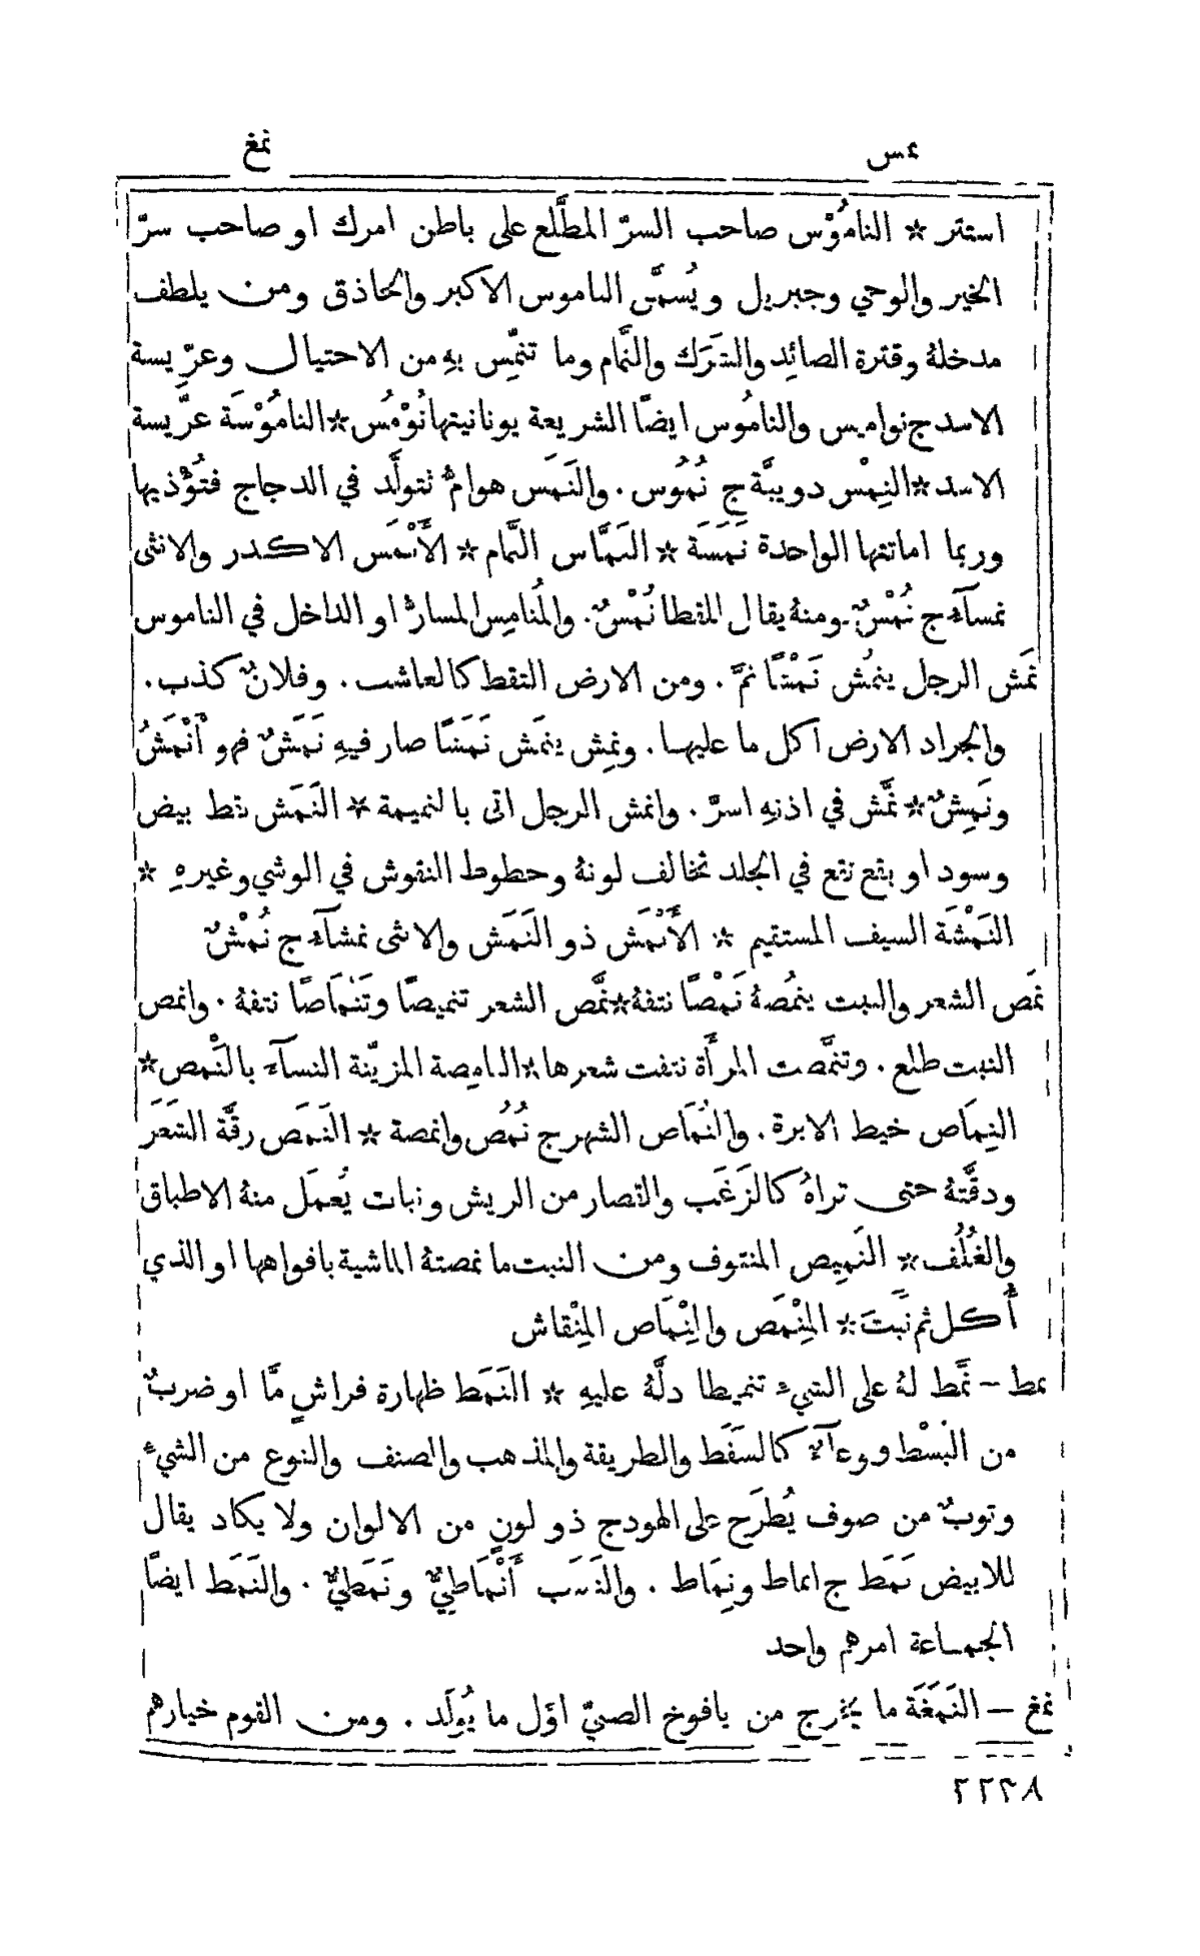 نمس
نمغ
استتر * النامُوْس صاحب السرّ المطَّلع على باطن امرك او صاحب سرّ
الخير والوحي وجبريل ويُسمَّى الناموس الاكبر والحاذق ومن يلطف
مدخلهُ وقترة الصائِد والشَرَك والنَّمام وما تنمّس بهِ من الاحتيال وعرّيسة
الاسد ج نواميس والنامُوس ايضًا الشريعة يونانيتها نُوْمُس * النامُوْسَة عرّيسة
الاسد * النِمْس دويبَّة ج نُمُوْس . والنَمَس هوامُّ تتولَّد في الدجاج فتُؤْذيها
وربما اماتتها الواحدة نَمَسَة * النَمَّاس النَّمام * الأَنْمَس الاكدر والانثى
نمسآءُ ج نُمْسٌ . ومنهُ يقال للقطا نُمْسٌ . والمُنامِس المسارّ او الداخل في الناموس
نَمَش الرجل ينمُش نَمْشًا نمَّ . ومن الارض التقط كالعاشب . وفلانٌ كذب .
والجراد الارض اكل ما عليها . ونمِش ينمَش نَمَشًا صار فيهِ نَمَشٌ فهو أَنْمَشُ
ونَمِشٌ * نمَّش في اذنهِ اسرَّ . وانمش الرجل اتى بالنميمة * النَمَش نقط بيض
وسود او بقع تقع في الجلد تخالف لونهُ وخطوط النقوش في الوشي وغيرهِ *
النَمْشَة السيف المستقيم * الأَنْمَش ذو النَمَش والانثى نمشآءُ ج نُمْشٌ
نمَص الشعر والنبت ينمُصهُ نَمْصًا نتفهُ * نمَّص الشعر تنميصًا وتَنْمَاصًا نتفهُ . وانمص
النبت طلع . وتنمَّصت المرأَة نتفت شعرها * النامِصة المزيّنة النسآءَ بالنَّمص *
النِمَاص خيط الابرة . والنُمَاص الشهر ج نُمُص وانمصة * النَمَص رقَّة الشعَر
ودقَّتهُ حتى تراهُ كالزَغَب والقصار من الريش ونبات يُعمَل منهُ الاطباق
والغُلُف * النَمِيص المنتوف ومن النبت ما نمصتهُ الماشية بافواهها او الذي
أُكل ثم نَبَتَ * المِنْمَص والمِنْمَاص المِنْقاش
نمط – نمَّط لهُ على الشيءِ تنميطا دلَّهُ عليهِ * النَمَط ظهارة فراشٍ مَّا او ضربٌ
من البُسْط ووعآءٌ كالسَفَط والطريقة والمذهب والصنف والنوع من الشيءِ
وثوبٌ من صوف يُطرَح على الهودج ذو لونٍ من الالوان ولا يكاد يقال
للابيض نَمَط ج انماط ونِمَاط . والنَسَب أَنْمَاطِيٌّ ونَمَطيٌّ . والنَمَط ايضًا
الجماعة امرهم واحد
نمغ – النَمَغَة ما يخرج من يافوخ الصبيّ اوَّل ما يُولَد . ومن القوم خيارهم
٢٢٣٨